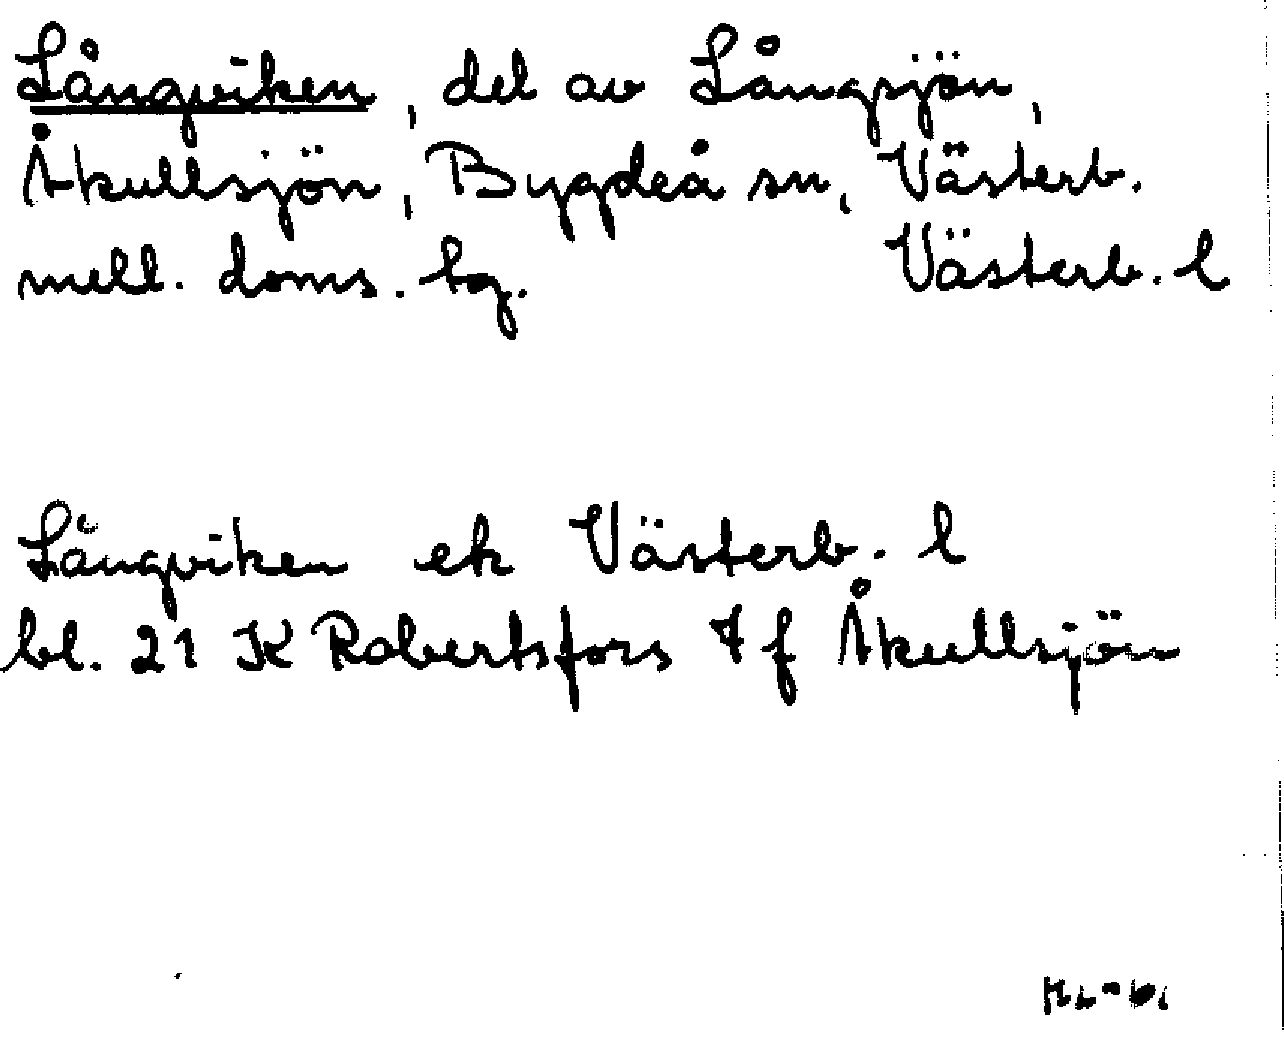 Långviken, del av Långsjön,
Åkullsjön, Bygdeå sn, Västerb.
mell. doms. tg. Västerb. l
Långviken ek Västerb. l
bl. 21 K Robertsfors 7 f Åkullsjön